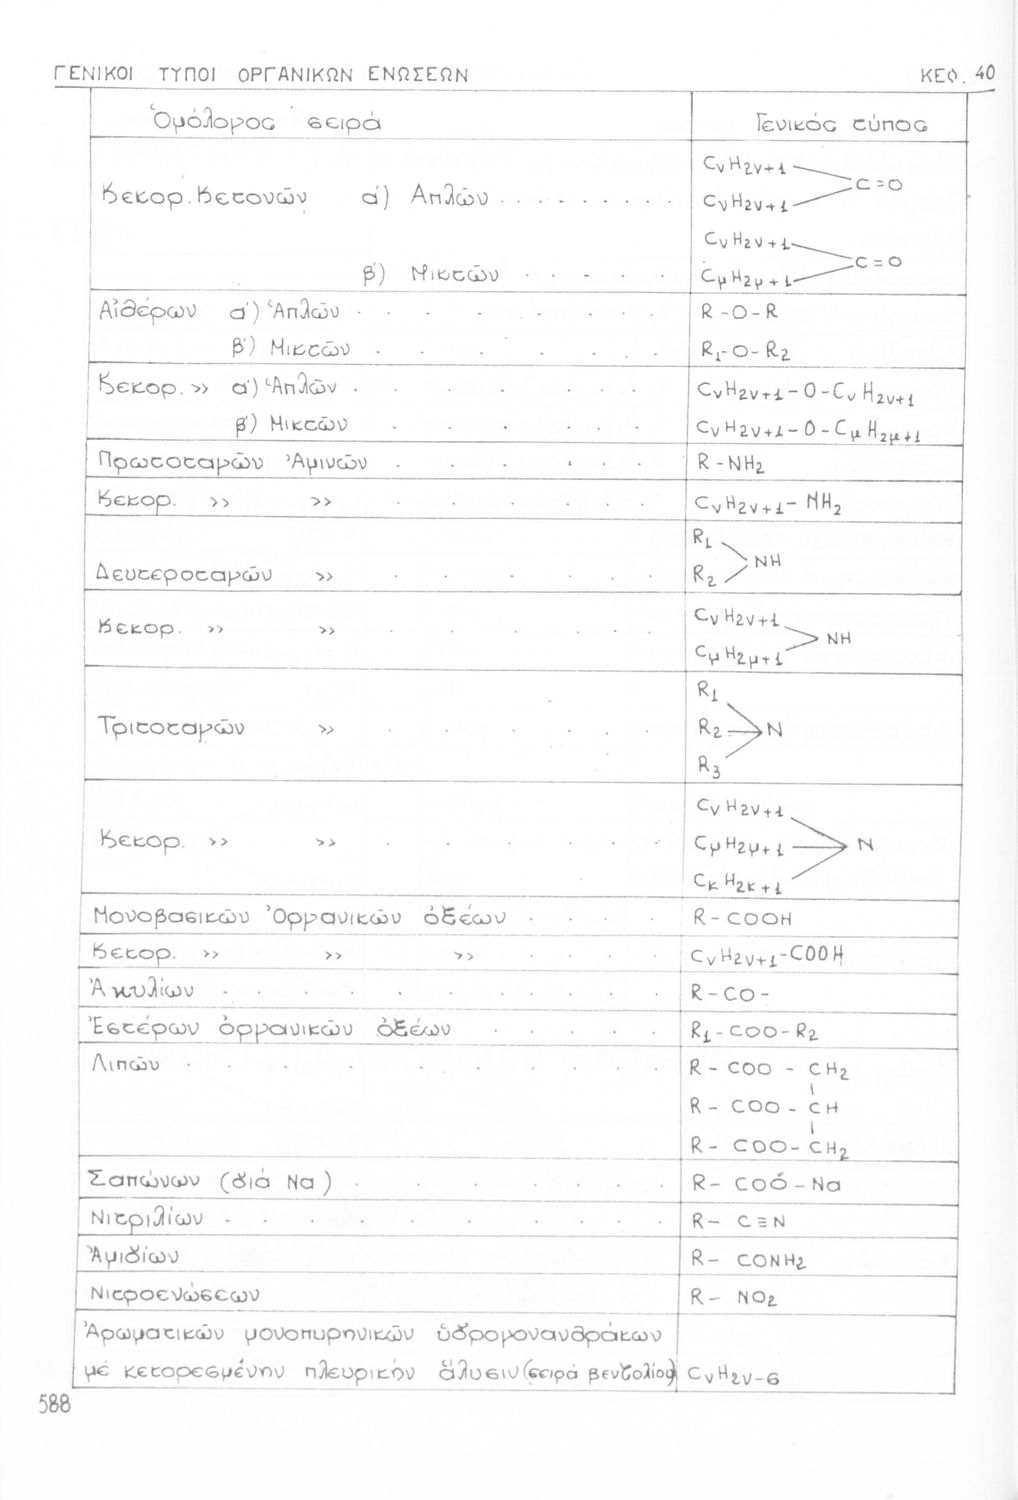 ΓΕΝΙΚΟΙ ΤΥΠΟΙ ΟΡΓΑΝΙΚΩΝ ΕΝΩΣΕΩΝ ΚΕΦ. 40
Ὁμόλογος σειρά Γενικός τύπος
Κεκορ. Κετονῶν α') Ἁπλῶν . . . . . . . . . CνH2ν+1
C=O
CνH2ν+1
β') Μικτῶν . . . . . CνH2ν+1
C=O
CμH2μ+1
Αἰθέρων α') Ἁπλῶν . . . . . . . . R-O-R
β') Μικτῶν . . . . . . . R1-O-R2
Κεκορ. » α') Ἁπλῶν . . . . . . . CνH2ν+1-O-CνH2ν+1
β') Μικτῶν . . . . . . CνH2ν+1-O-CμH2μ+1
Πρωτοταγῶν Ἀμινῶν . . . . . . . R-NH2
Κεκορ. » » . . . . . . CνH2ν+1-NH2
R1
NH
Δευτεροταγῶν » . . . . . . R2
Κεκορ. » » . . . . . . CνH2ν+1
NH
CμH2μ+1
R1
Τριτοταγῶν » . . . . . . R2 N
R3
CνH2ν+1
Κεκορ. » » . . . . . . CμH2μ+1 N
CκH2κ+1
Μονοβασικῶν Ὀργανικῶν ὀξέων . . . . R-COOH
Κεκορ. » » » . . . . CνH2ν+1-COOH
Ἀκυλίων . . . . . . . . . . . R-CO-
Ἐστέρων ὀργανικῶν ὀξέων . . . . . R1-COO-R2
Λιπῶν . . . . . . . . . . . R-COO-CH2
R-COO-CH
R-COO-CH2
Σαπώνων (διά Na) . . . . . . . R-COO-Na
Νιτριλίων . . . . . . . . . . R-C≡N
Ἀμιδίων R-CONH2
Νιτροενώσεων R-NO2
Ἀρωματικῶν μονοπυρηνικῶν ὑδρογονανθράκων
μέ κεκορεσμένην πλευρικήν ἅλυσιν (σειρά βενζολίου) CνH2ν-6
588